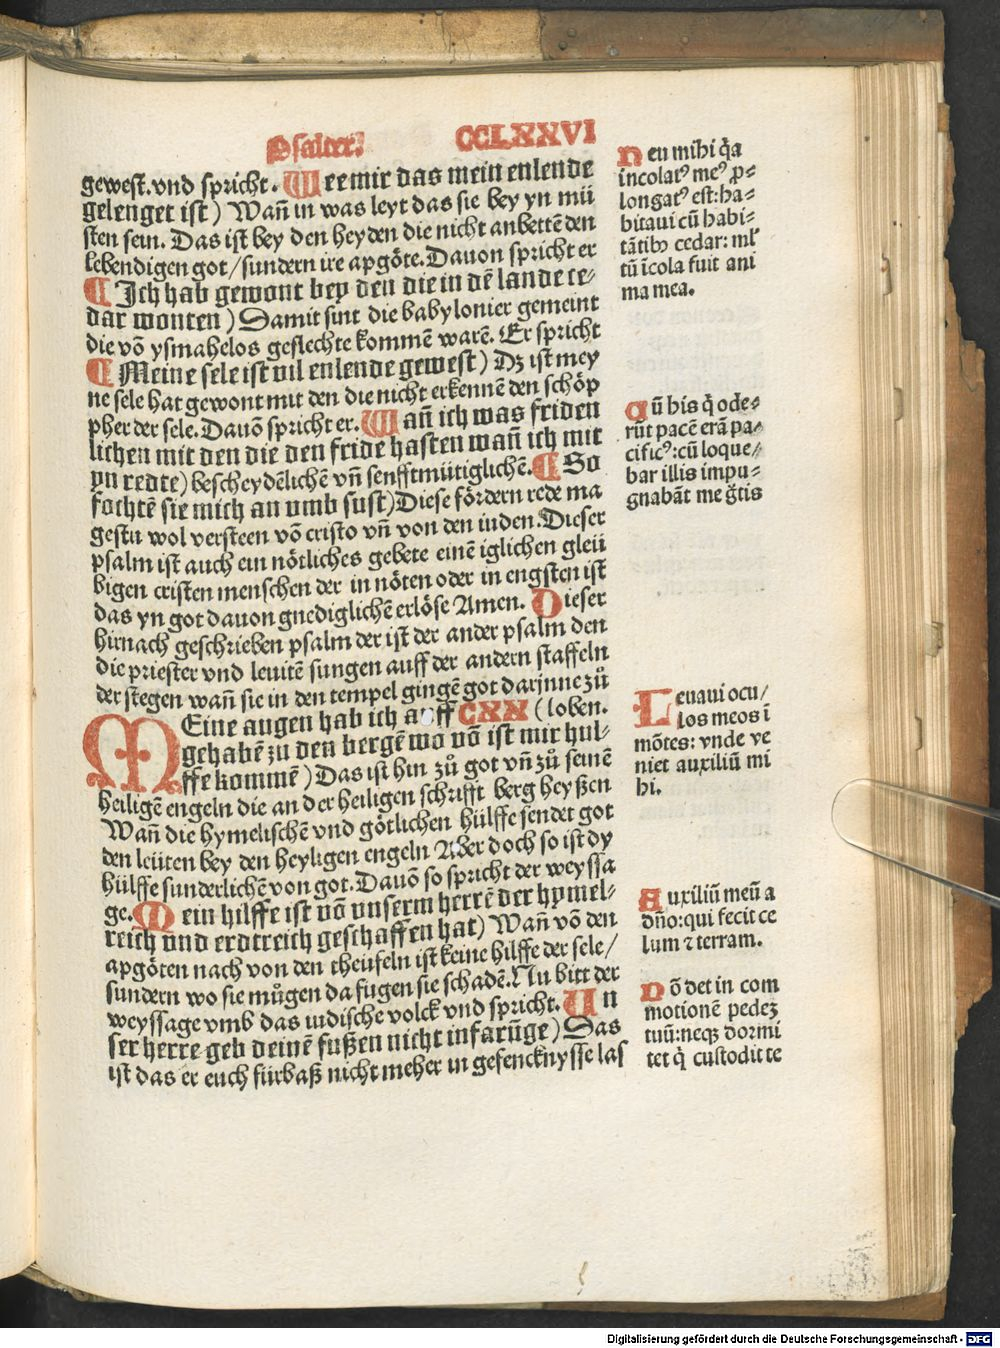 Psalter. CCLXXVI
gewest. vnd spricht. Wee mir das mein enlende
gelenget ist) Wañ in was leyt das sie bey yn mü
sten sein. Das ist bey den heyden die nicht anbettē den
lebendigen got/sundern ire apgöte. Dauon spricht er
Ich hab gewont bey den die in dē lande ce-
dar wonten) Damit sint die babylonier gemeint
die vō ysmahelos geslechte kommē warē. Er spricht
Meine sele ist vil enlende gewest) Dz ist mey
ne sele hat gewont mit den die nicht erkennē den schöp
pher der sele. Dauō spricht er. Wañ ich was friden
lichen mit den die den fride hasten wañ ich mit
yn redte) bescheydēlichē vñ senfftmütiglichē. So
fachtē sie mich an vmb sust) Diese fördern rede ma
gestu wol versteen vō cristo vñ von den iuden. Dieser
psalm ist auch ein nötliches gebete einē iglichen gleü
bigen cristen menschen der in nöten oder in engsten ist
das yn got dauon gnediglichē erlöse Amen. Dieser
hirnach geschrieben psalm der ist der ander psalm den
die priester vnd leuitē sungen auff der andern staffeln
der stegen wañ sie in den tempel gingē got darjnne zů
Meine augen hab ich auff CXX (loben.
gehabē zu den bergē wo vō ist mir hul-
ffe kommē) Das ist hin zů got vñ zů seinē
heiligē engeln die an der heiligen schrifft berg heyßen
Wañ die hymelischē vnd götlichen hülffe sendet got
den leüten bey den heyligen engeln Aber doch so ist dy
hülffe sunderlichē von got. Dauō so spricht der weyssa
ge. Mein hilffe ist vō vnserm herrē der hymel-
reich vnd erdtreich geschaffen hat) Wañ vō den
apgöten nach von den theufeln ist keine hilffe der sele/
sundern wo sie můgen da fugen sie schadē. Nu bitt der
weyssage vmb das iudische volck vnd spricht. Un
ser herre geb deinē fußen nicht infarūge) Das
ist das er euch fürbaß nicht meher in gefencknysse las
Neu mihi q̄a
incolatꝰ meꝰ ꝓ-
longatꝰ est: ha-
bitaui cū habi-
tātibꝰ cedar: ml̓
tū īcola fuit ani
ma mea.
Cū his q̄ ode-
rūt pacē erā pa-
cificꝰ: cū loque-
bar illis impu-
gnabāt me g̃tis
Leuaui ocu/
los meos ī
mōtes: vnde ve
niet auxiliū mi
hi.
Auxiliū meū a
dño: qui fecit ce
lum ⁊ terram.
Nō det in com
motionē pedeꝫ
tuū: neqꝫ dormi
tet q̄ custodit te
Digitalisierung gefördert durch die Deutsche Forschungsgemeinschaft - DFG